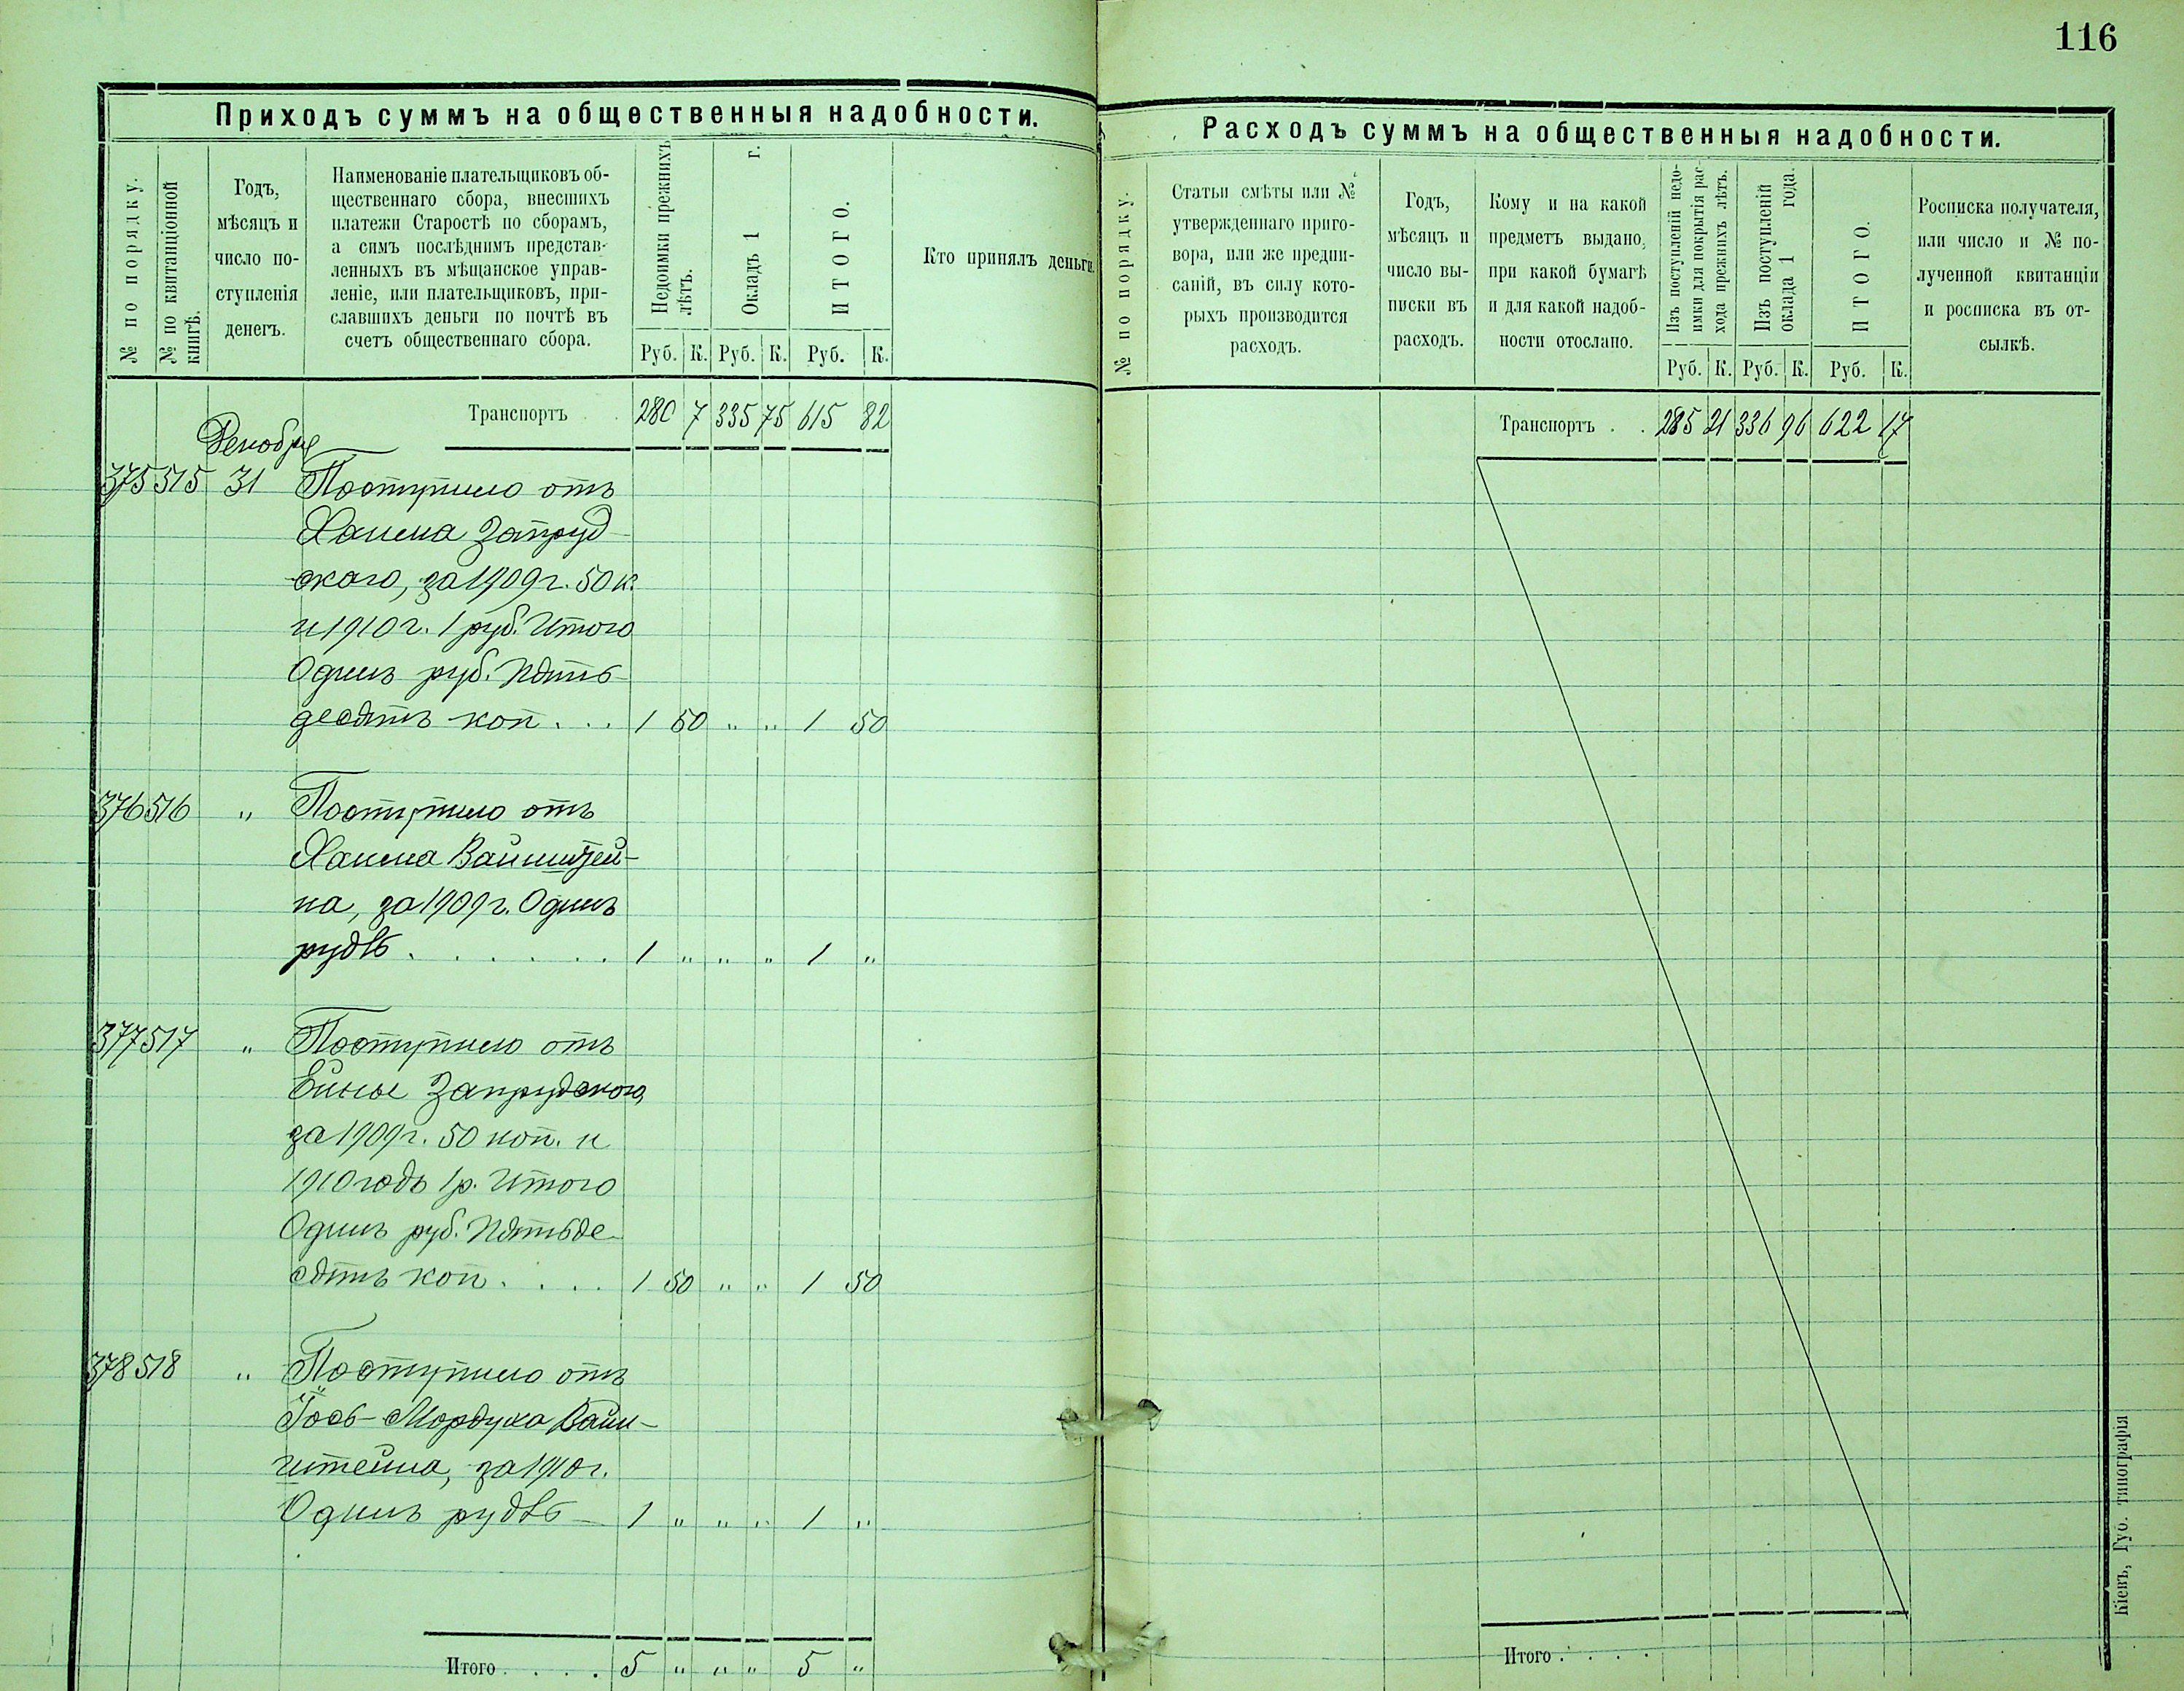 116
Приходъ суммъ на общественныя надобности.
№ по порядку.
№ по квитанціонной
книгѣ.
Годъ,
мѣсяцъ и
число по-
ступленія
денегъ.
Наименованіе плательщиковъ об-
щественнаго сбора, внесшихъ
платежи Старостѣ по сборамъ,
а симъ послѣднимъ представ-
ленныхъ въ мѣщанское управ-
леніе, или плательщиковъ, при-
славшихъ деньги по почтѣ въ
счетъ общественнаго сбора.
Недоимки прежнихъ
лѣтъ.
Окладъ 1 г.
ИТОГО.
Кто принялъ деньги.
Руб. К. Руб. К. Руб. К.
Транспортъ 280 7 335 75 615 82
Декабря
375 515 31 Поступило отъ
Хаима Запруд-
скаго, за 1909 г. 50 к.
и 1910 г. 1 руб. Итого
Одинъ руб. Пять-
десятъ коп . . . 1 50 " " 1 50
376 516 " Поступило отъ
Хаима Вайнштей-
на, за 1909 г. Одинъ
рубль . . . . . . 1 " " " 1 "
377 517 " Поступило отъ
Запрудского,
за 1909 г. 50 коп. и
1910 годъ 1 р. Итого
Одинъ руб. Пятьде-
сятъ коп . . . . 1 50 " " 1 50
378 518 " Поступило отъ
Іось-Мордуха Вайн-
штейна, за 1910 г.
Одинъ рубль - 1 " " " 1 "
Итого . . . . 5 " " " 5 "
Расходъ суммъ на общественныя надобности.
№ по порядку.
Статьи смѣты или №
утвержденнаго приго-
вора, или же предпи-
саній, въ силу кото-
рыхъ производится
расходъ.
Годъ,
мѣсяцъ и
число вы-
писки въ
расходъ.
Кому и на какой
предметъ выдано,
при какой бумагѣ
и для какой надоб-
ности отослано.
Изъ поступленій недо-
имки для покрытія рас-
хода прежнихъ лѣтъ.
Изъ поступленій
оклада 1 года.
ИТОГО.
Росписка получателя,
или число и № по-
лученной квитанціи
и росписка въ от-
сылкѣ.
Руб. К. Руб. К. Руб. К.
Транспортъ . . 285 21 336 96 622 17
Итого . . . .
Кіевъ, Губ. типографія